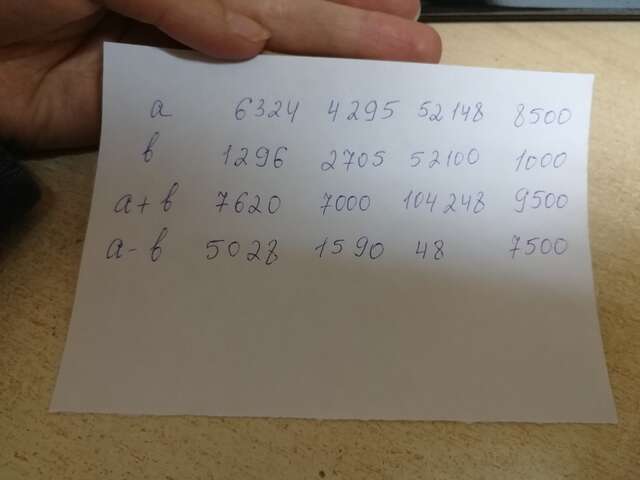 a 6324 4295 52148 8500
b 1296 2705 52100 1000
a+b 7620 7000 104248 9500
a-b 5028 1590 48 7500